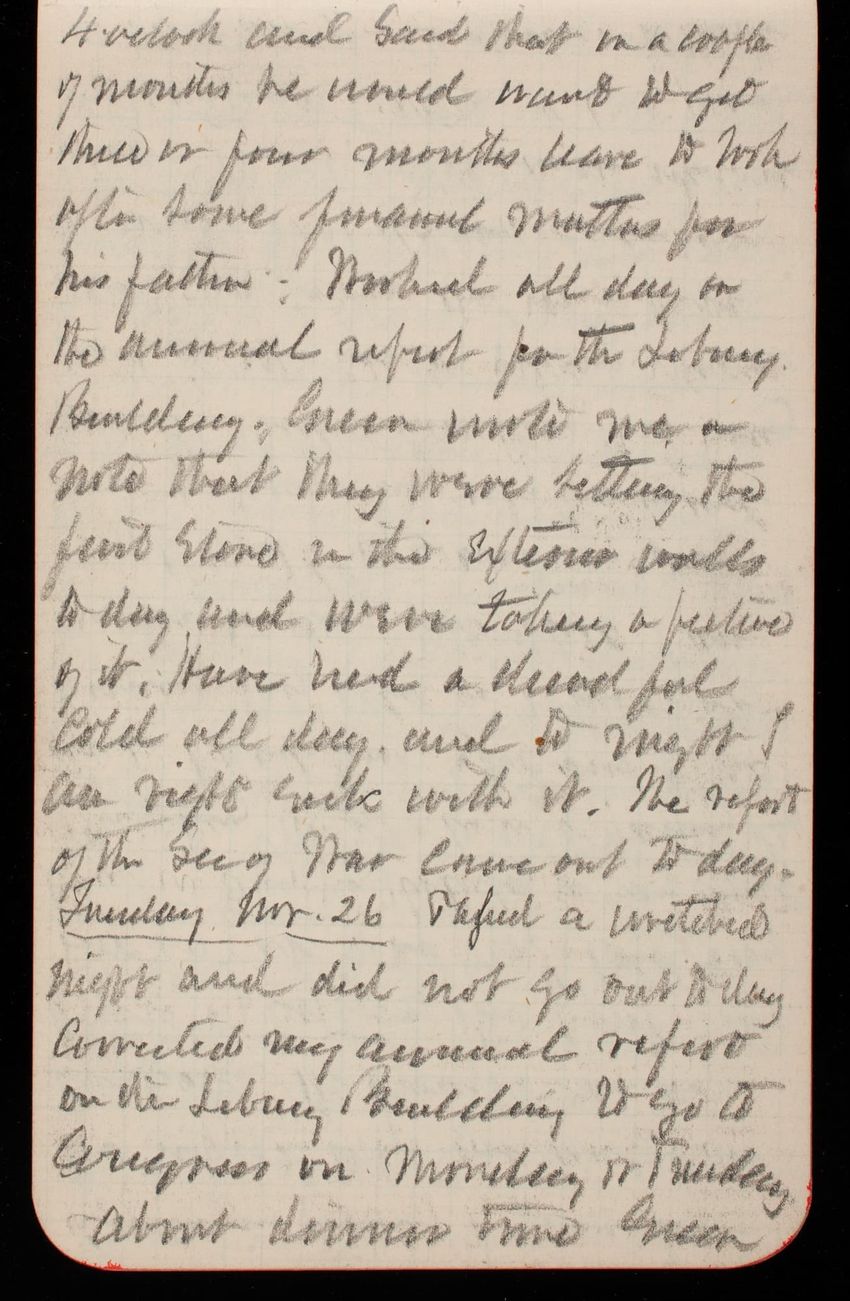 4 oclock and said that in a couple
of months he would want to get
three or four months leave to look
after some financial matters for
his father. Worked all day on
the annual report for the Library
Building. Green wrote me a
note that they were setting the
first stone in the exterior walls
to day and were taking a picture
of it. Have had a dreadful
cold all day. and to night I
am right sick with it. The report
of the Sec of War came out to day.
Tuesday Nov. 26 Passed a wretched
night and did not go out to day
Corrected my annual report
on the Library Building to go to
Congress on Monday or Tuesday
about dinner time Green